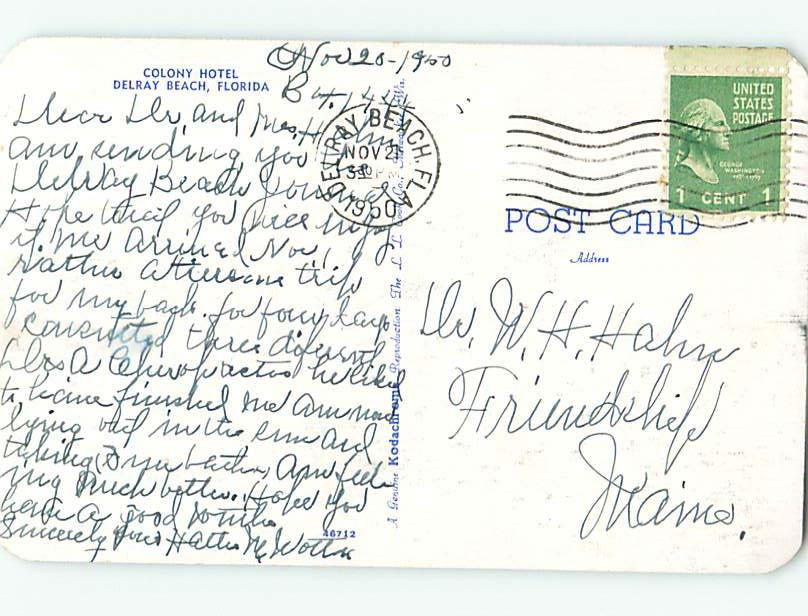 COLONY HOTEL
DELRAY BEACH, FLORIDA
Nov 20-1950
Box 1444
Dear Dr and Mrs Hahn
am sending you
Delray Beach
Hope that you
it. Me Arrived Nov. 1
rather a tiresome trip
for my back. for four days
consulted three different
Drs A Chiropractor he liked
to have finished me am now
lying out in the sun and
taking Sun baths, Am feel
ing much better. Hope you
have a good winter
Sincerely yours Hattie
46712
A Genuine Kodachrome Reproduction The L. L. Cook Co.
DELRAY BEACH, FLA.
NOV 21
1950
UNITED
STATES
POSTAGE
GEORGE
WASHINGTON
1 CENT 1
POST CARD
Address
Dr. W. H. Hahn
Friendship
Maine.